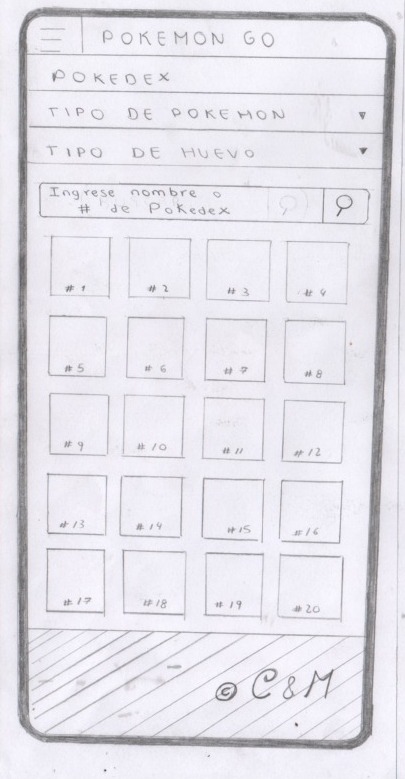 POKEMON GO
POKEDEX
TIPO DE POKEMON
TIPO DE HUEVO
Ingrese nombre o
# de Pokedex
#1 #2 #3 #4
#5 #6 #7 #8
#9 #10 #11 #12
#13 #14 #15 #16
#17 #18 #19 #20
© C&M